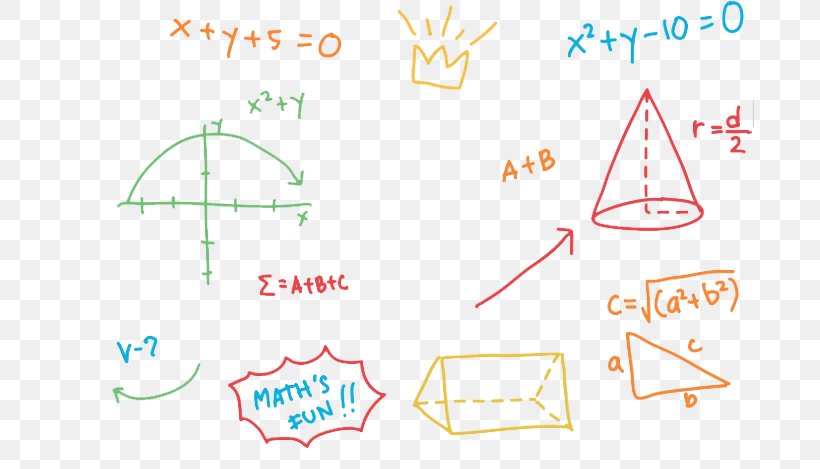 x + y + 5 = 0
x² + y - 10 = 0
x² + y
y
r = d/2
A + B
x
Σ = A + B + C
c = √(a² + b²)
V - ?
a
c
b
MATH'S
FUN!!